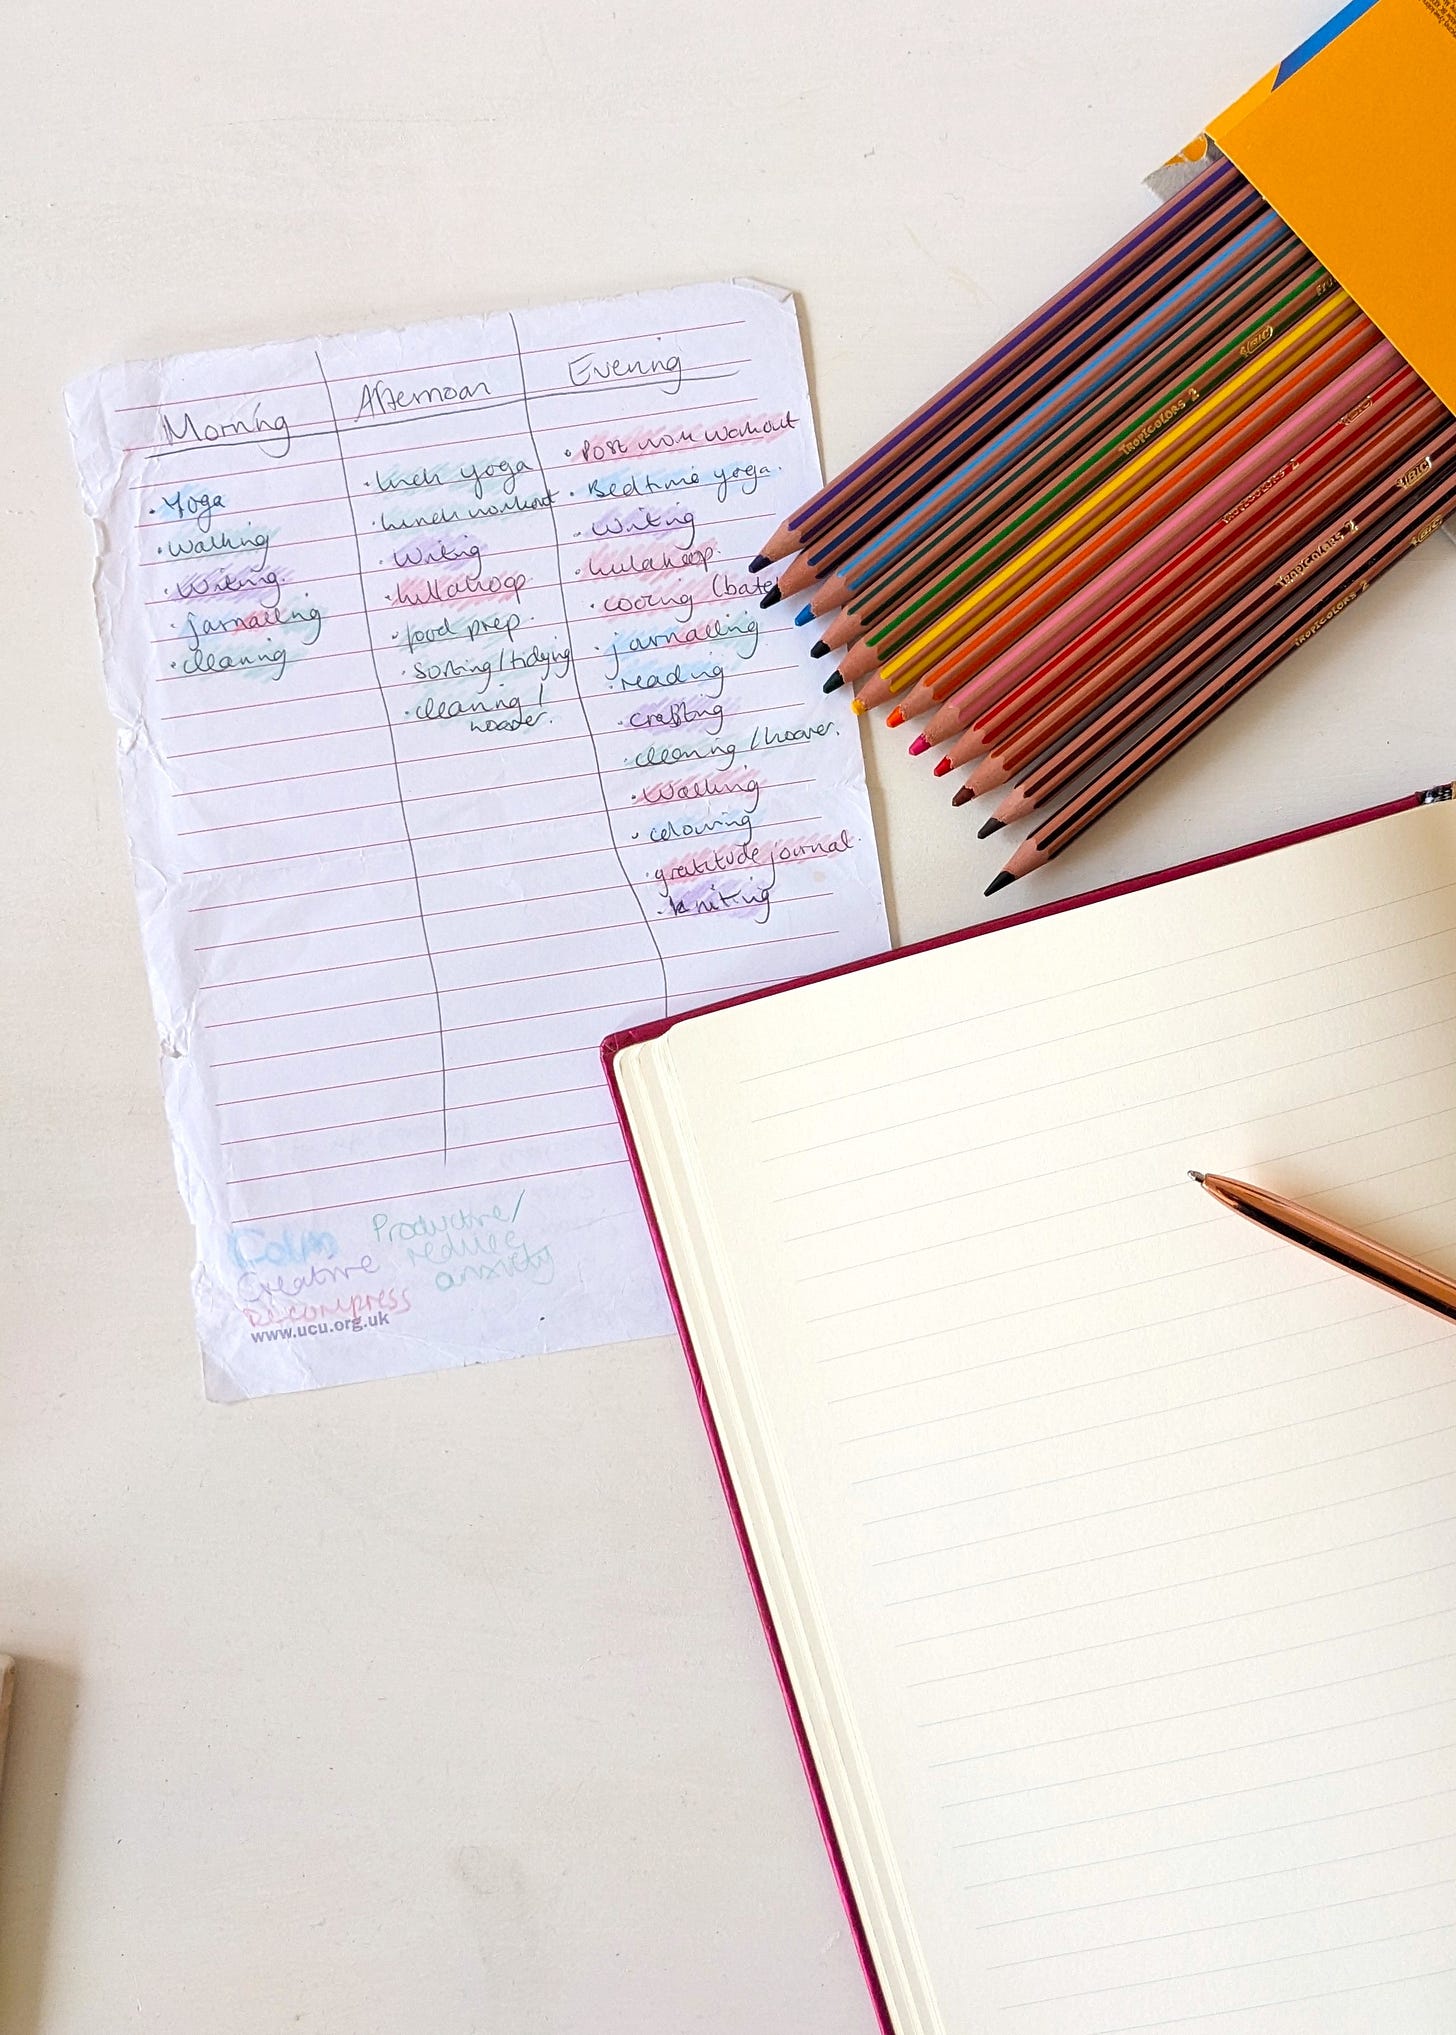 Morning
Afternoon
Evening
· Yoga
· Walking
· Writing.
· journalling
· cleaning
· lunch yoga
· lunch workout
· Writing
· hullahoop
· food prep.
· sorting/tidying
· cleaning/
hoover.
· Post work workout
· Bedtime yoga.
· Writing
· hulahoop.
· cooking (batch
· journalling
· reading
· crafting
· cleaning/hoover.
· Walking
· colouring
· gratitude journal.
· knitting
Calm
Creative
Decompress
Productive/
reduce
anxiety
www.ucu.org.uk
BIC
TROPICOLORS 2
BIC
TROPICOLORS 2
BIC
TROPICOLORS 2
BIC
TROPICOLORS 2